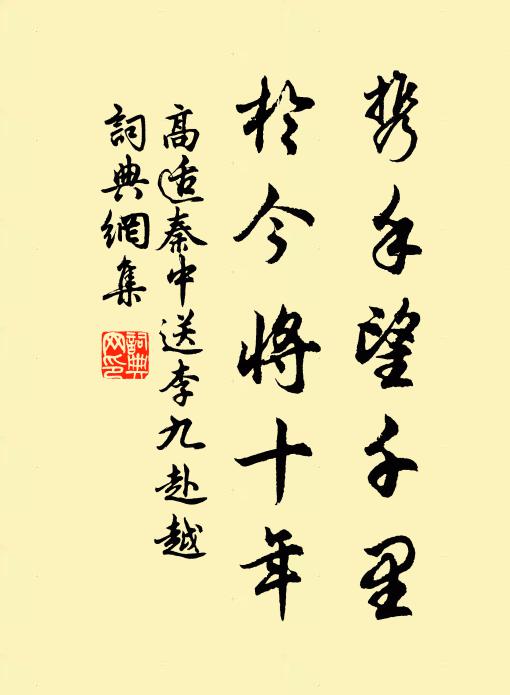 携手望千里
於今将十年
高适秦中送李九赴越
詞典網集
詞典网印